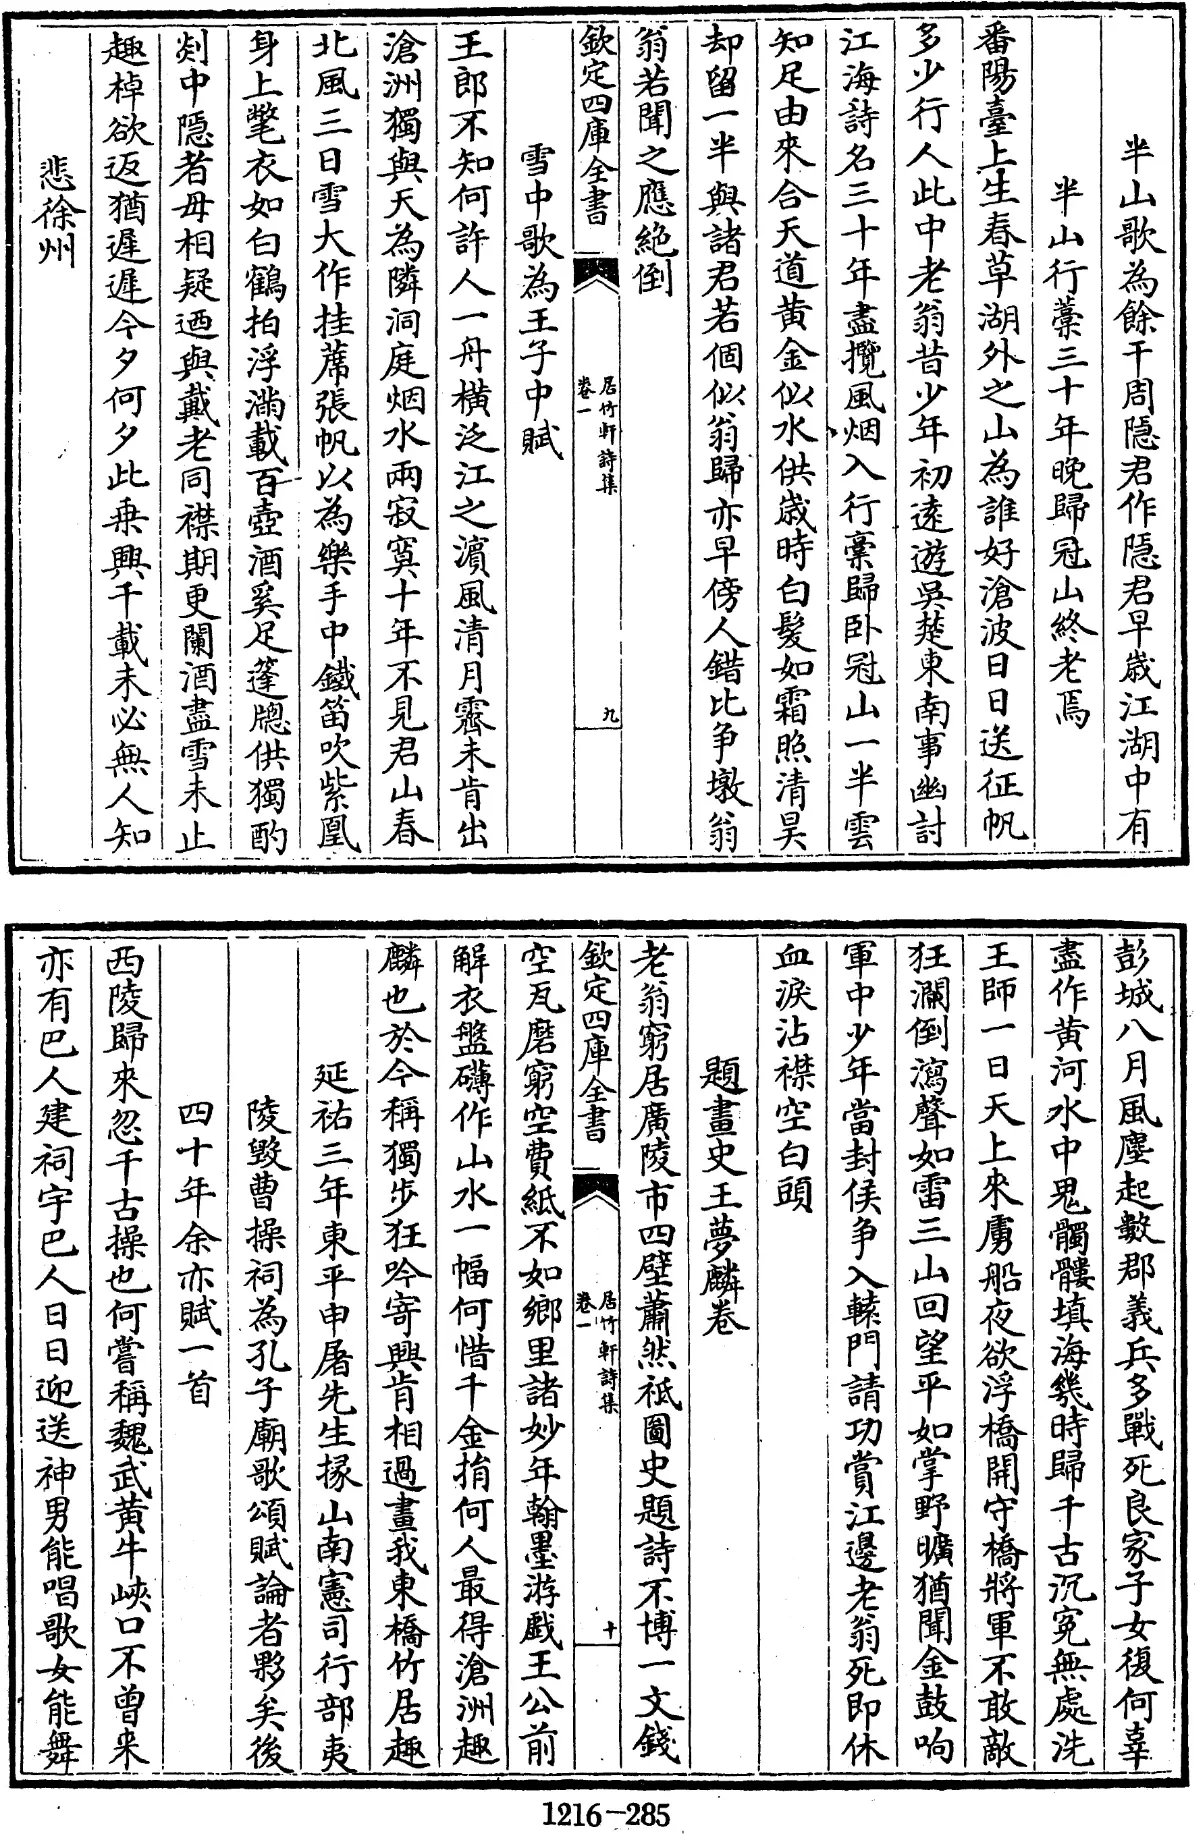 半山歌為餘干周隠君作隠君早歲江湖中有
半山行藁三十年晚歸冠山終老焉
番陽臺上生春草湖外之山為誰好滄波日日送征帆
多少行人此中老翁昔少年初逺遊吳楚東南事幽討
江海詩名三十年盡攬風烟入行稾歸卧冠山一半雲
知足由來合天道黄金似水供歲時白髪如霜照清昊
却留一半與諸君若個似翁歸亦早傍人錯比争墩翁
翁若聞之應絶倒
欽定四庫全書
居竹軒詩集
卷一
九
雪中歌為王子中賦
王郎不知何許人一舟横泛江之濵風清月霽未肯出
滄洲獨與天為隣洞庭烟水兩寂寞十年不見君山春
北風三日雪大作挂蓆張帆以為樂手中鐵笛吹紫凰
身上氅衣如白鶴拍浮滿載百壺酒奚足蓬牕供獨酌
剡中隠者毋相疑迺與戴老同襟期更闌酒盡雪未止
趣棹欲返猶遲遲今夕何夕此乗興千載未必無人知
悲徐州
彭城八月風塵起數郡義兵多戰死良家子女復何辜
盡作黄河水中鬼髑髏填海幾時歸千古沉寃無處洗
王師一日天上來虜船夜欲浮橋開守橋將軍不敢敵
狂瀾倒瀉聲如雷三山回望平如掌野曠猶聞金鼓响
軍中少年當封侯争入轅門請功賞江邊老翁死即休
血淚沾襟空白頭
題畫史王夢麟卷
老翁窮居廣陵市四壁蕭然祗圖史題詩不博一文錢
欽定四庫全書
居竹軒詩集
卷一
十
空瓦磨窮空費紙不如鄉里諸妙年翰墨游戲王公前
解衣盤礴作山水一幅何惜千金捐何人最得滄洲趣
麟也於今稱獨步狂吟寄興肯相過畫我東橋竹居趣
延祐三年東平申屠先生掾山南憲司行部夷
陵毁曹操祠為孔子廟歌頌賦論者夥矣後
四十年余亦賦一首
西陵歸來忽千古操也何嘗稱魏武黄牛峽口不曽来
亦有巴人建祠宇巴人日日迎送神男能唱歌女能舞
1216-285